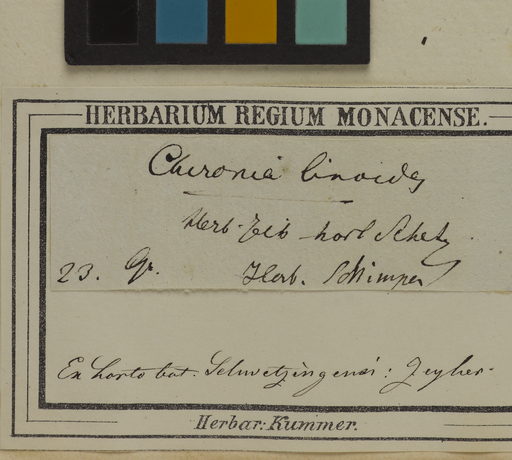 HERBARIUM REGIUM MONACENSE.
Chironia linoides
Herb. Zeih hort Schetz.
23. Gr. Herb. Schimper
Ex horto bot. Schwetzingensi: Zeyher.
Herbar: Kummer.